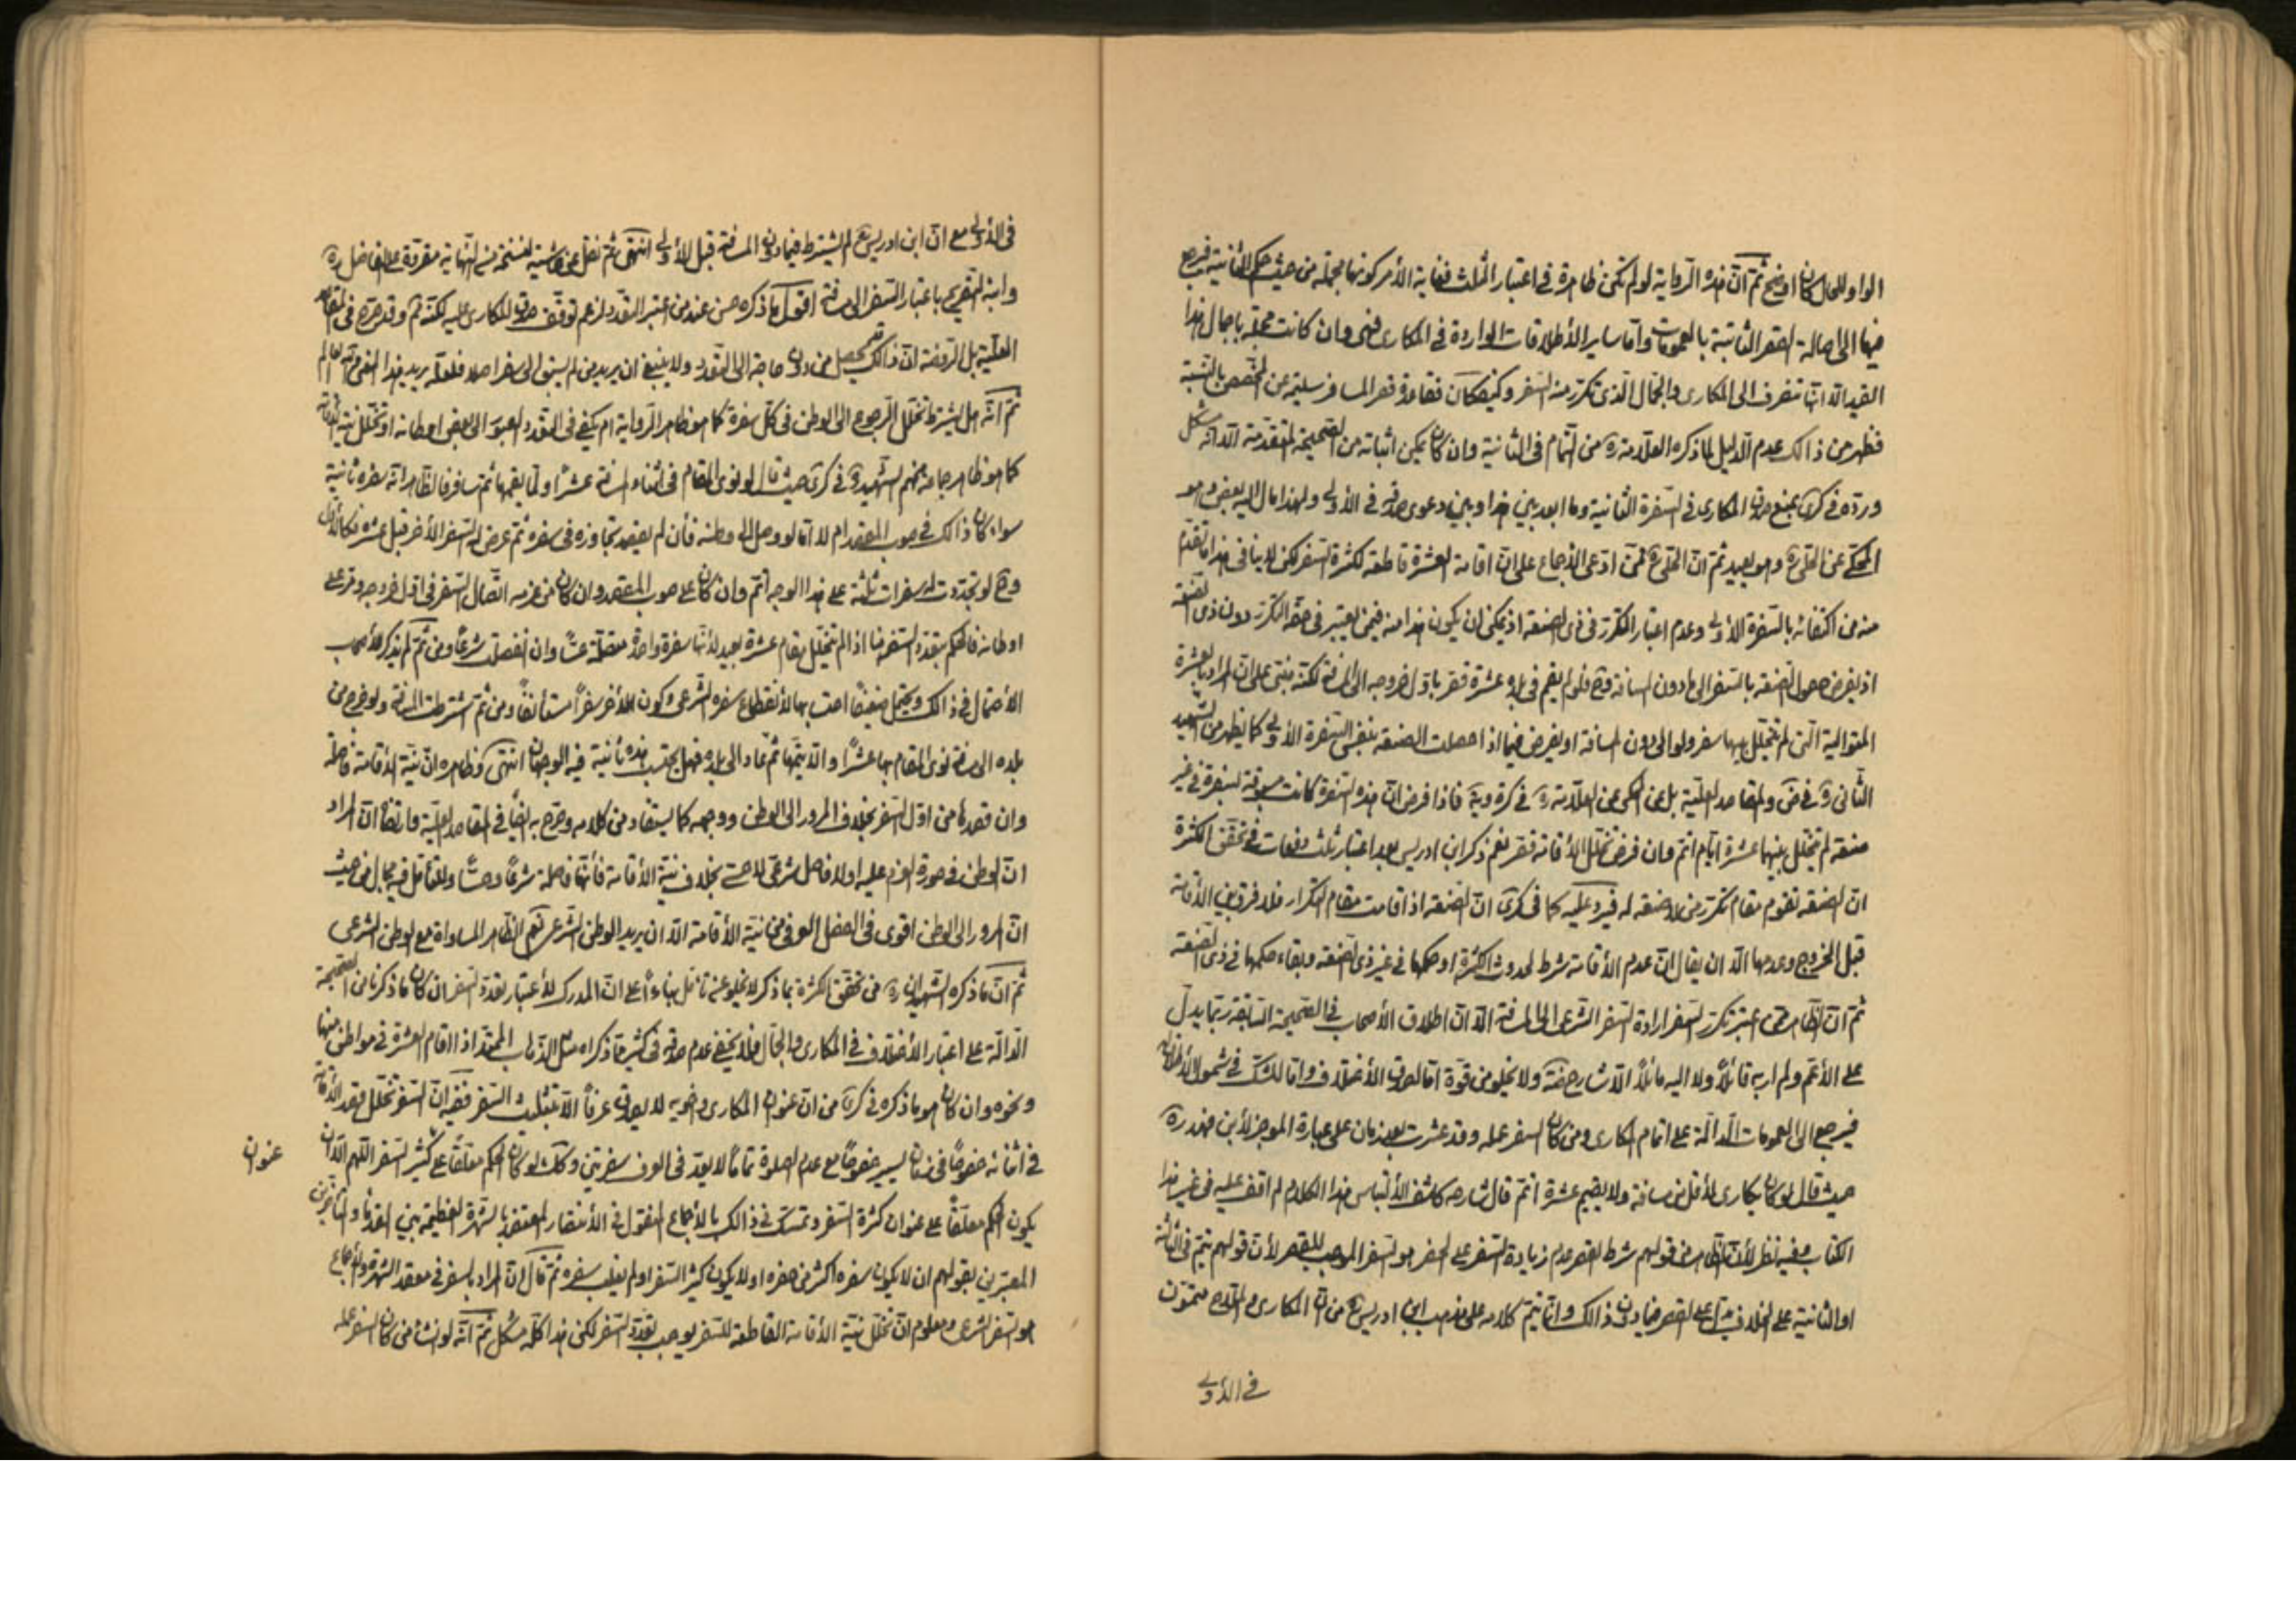 الواو للحال كان اوضح ثم ان هذه الرواية لو لم تكن ظاهرة فى اعتبار الثلث فغاية الأمر كونها مجملة من حيث حكم الثانية فيرجع
فيها الى اصالة القصر الثابتة بالعمومات وامّا ساير الأطلاقات الواردة فى المكارى فهى وان كانت محتملة باجمال هذا
القيد الّا انّها تنصرف الى المكارى والجمّال الّذى تكرّر منه السّفر وكيف كان فقاعدة قصر المسافر سليمة عن المخصّص بالنسبة
فظهر من ذالك عدم الدّليل لما ذكره العلّامة ره من التمام فى الثانية وان كان يمكن اثباته من الصّحيحة المتقدمة الّا انّه مشكل
وردّه فى كرى بمنع صدق المكارى فى السّفرة الثانية وما ابعد بين هذا وبين دعوى صدقه فى الأولى ولهذا مال اليه بعض وهو
المحكّى عن الحلّى ره وهو بعيد ثم انّ الحلّى ره ممّن ادّعى الأجماع على انّ اقامة العشرة قاطعة لكثرة السّفر لكن لا ينافى هذا ما تقدّم
منه من اكتفائه بالسّفرة الأولى وعدم اعتبار التكرّر فى ذى الصنعة اذ يمكن ان يكون هذا منه فيمن يعتبر فى حقّه التكرّر دون ذى الصّنعة
اذ يفرض حصول الصّنعة بالسّفر الى مادون المسافة وح فلو لم يقم فى بلده عشرة قصر باوّل خروجه الى المسافة لكنّه مبنى على انّ المراد بالعشرة
المتوالية الّتى لم يتخلّل بينها سفر ولو الى دون المسافة او يفرض فيما اذا حصلت الصنعة بنفس السّفرة الأولى كما يظهر من الشهيد
الثّانى ره فى ض والمقاصد العليّة بل عن المحكى عن العلّامة ره فى كرة وية فاذا فرض انّ هذه السّفرة كانت مسبوقة بسفرة فى غير
صنعة لم يتخلّل بينهما عشرة ايّام اتمّ وان فرض تخلّل الأقامة قصر نعم ذكر ابن ادريس بعد اعتبار ثلث دفعات فى تحقّق الكثرة
ان الصنعة تقوم مقام تكرّر من لا صنعة له فيرد عليه كما فى كرى انّ الصّنعة اذا قامت مقام التكرار فلا فرق بين الأقامة
قبل الخروج وعدمها الّا ان يقال انّ عدم الأقامة شرط لحدوث الكثرة او حكمها فى غير ذى الصّنعة وبقاء حكمها فى ذى الصّنعة
ثم انّ الظّاهر ممّن اعتبر تكرّر السّفر ارادة السّفر الشرعى الى المسافة الّا انّ اطلاق الأصحاب فى الصّحيحة السّابقة ربّما يدلّ
على الأعمّ ولم ار به قائلاً ولا اليه مائلاً الّا شارح ضة ولا يخلو من قوّة امّا لصدق الأختلاف وامّا للشكّ فى شمول الأطلاق
فيرجع الى العمومات الدالّة على اتمام المكارى ومن كان السفر عمله وقد عثرت بعد زمان على عبارة الموجز لأبن فهد ره
حيث قال لو كان يكارى لأقل من مسافة ولا يقيم عشرة اتمّ قال شارحه كاشف الألتباس هذا الكلام لم اقف عليه فى غير هذا
الكتاب وفيه نظر لأنّ الظّاهر من قولهم شرط القصر عدم زيادة السّفر على الحضر هو السّفر الموجب للقصر لأنّ قولهم يتمّ فى الثّالثة
او الثانية على الخلاف يدلّ على القصر فيما دون ذالك وانّما يتمّ كلامه على مذهب ابن ادريس ره من ان المكارى والملّاح يتمّون
فى الأولى
فى الأولى مع انّ ابن ادريس ره لم يشترط فيما دون المسافة قبل الأولى انتهى ثم نقل عن حاشية لنسخة من النّهاية مقروّة على الفاضل ره
وابنه التّصريح باعتبار السّفر الى مسافة اقول ما ذكره حسن عند من اعتبر التعدّد لزعم توقّف صدق المكارى عليه لكنّه وقد صرّح فى المقاصد
العليّة بل الروضة انّ ذالك قد يحصل من دون حاجة الى التعدّد ولا ينبغى ان يريد من لم يسبق الى سفر اصلا فلعلّه يريد هذا المعنى
ثم انّه هل يشترط تخلّل الرّجوع الى الوطن فى كلّ سفرة كما هو ظاهر الرّواية ام يكفى فى التعدّد العبور الى بعض اوطانه او تخلّل نيّة الأقامة
كما هو ظاهر جماعة منهم الشّهيد ره فى كرى حيث قال لو نوى المقام فى اثناء المسافة عشرًا ولمّا يقمها ثم سافر فالظّاهر انّه سفرة ثانية
سواء كان ذالك فى صوب المقصد ام لا امّا لو وصل الى وطنه فأن لم يقصد تجاوزه فى سفره ثم عرض له السّفر الأخر قبل عشرة فكالأوّل
وح لو تجدّدت له سفرات ثلثة على هذا الوجه اتمّ وان كان على صوب المقصد وان كان من عزمه اتّصال السّفر فى اوّل خروجه ومرّ على
اوطانه فالحكم بتعدّد السّفر هنا اذا لم يتخلّل مقام عشرة بعيد لأنّها سفرة واحدة متّصلة حسّا وان انفصلت شرعًا ومن ثم لم يذكر الأصحاب
الأحتمال فى ذالك ويحتمل ضعيفًا احتسابها لأنقطاع سفره الشّرعى وكون الأخر سفرًا مستأنفًا ومن ثم اشترطت المسافة ولو خرج من
بلده الى مسافة نوى المقام بها عشرًا والّا يتمّها ثم عاد الى بلده فهل يحتسب هذه ثانية فيه الوجهان انتهى وظاهره انّ نيّة الأقامة فاصلة
وان قصدها من اوّل السّفر بخلاف المرور الى الوطن ووجهه كما يستفاد من كلامه وصرّح به ايضًا فى المقاصد العليّة وارتضاه انّ المراد
انّ الوطن فى صورة العزم عليه اولا فاصل شرعى لا حسى بخلاف نيّة الأقامة فأنّها فاصلة شرعًا وحسًّا وللتأمّل فيه مجال من حيث
انّ المرور الى الوطن اقوى فى الفصل العرفى من نيّة الأقامة الّا ان يريد الوطن الشّرعى نعم الظّاهر المساواة مع الوطن الشرعى
ثم انّ ما ذكره الشّهيدان ره من تحقّق الكثرة بما ذكر لا يخلو عن تأمّل بناءً على انّ المدرك لأعتبار تعدّد السّفر ان كان ما ذكرنا من الصّحيحة
الدالّة على اعتبار الأختلاف فى المكارى والجمّال فلا يخفى عدم صدقه فى كثير ممّا ذكراه مثل الذّهاب الممتدّ اذا اقام العشرة فى مواطن منها
ونحوه وان كان هو ما ذكره فى كرى من انّ عنوان المكارى واخويه لا يصدق عرفاً الّا بتثليث السّفر ففيه انّ السّفر تخلّل قصد الأقامة
فى اثنائه خصوصًا فى زمان يسير خصوصًا مع عدم الصلوة تمامًا لا يعدّ فى العرف سفرتين وكك لو كان الحكم معلّقاً على كثير السّفر اللّهم الّا ان
عنوان
يكون الحكم معلّقًا على عنوان كثرة السّفر وتمسّك فى ذالك بالأجماع المنقول فى الأنتصار المعتضد بالشّهرة العظيمة بين القدماء والمتأخّرين
المعبّرين بقولهم ان لا يكون سفره اكثر من حضره او لا يكون كثير السّفر او لم يغلب سفره ثم قال انّ المراد بالسفر فى معقد الشهرة والأجماع
هو السّفر الشّرعى ومعلوم انّ تخلّل نيّة الأقامة القاطعة للسّفر يوجب تعدّد السّفر لكن هذا كلّه مشكل ثم انّه لو انشأ من كان السفر عمله